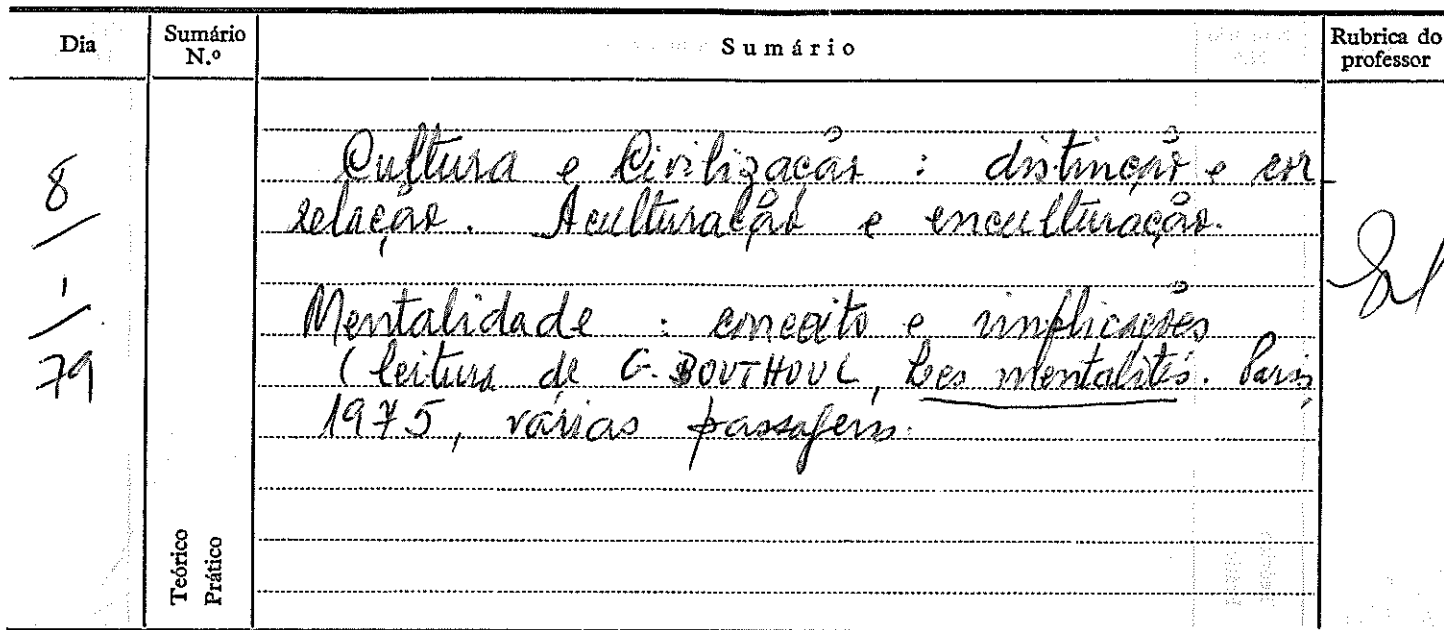 Dia
Sumário
N.º
Sumário
Rubrica do
professor
8
1
79
Cultura e Civilização : distinção e cor
relação. Aculturação e enculturação.
Mentalidade : conceito e implicações
(leitura de G. BOUTHOUL, Les mentalités. Paris,
1975, várias passagens.
Teórico
Prático